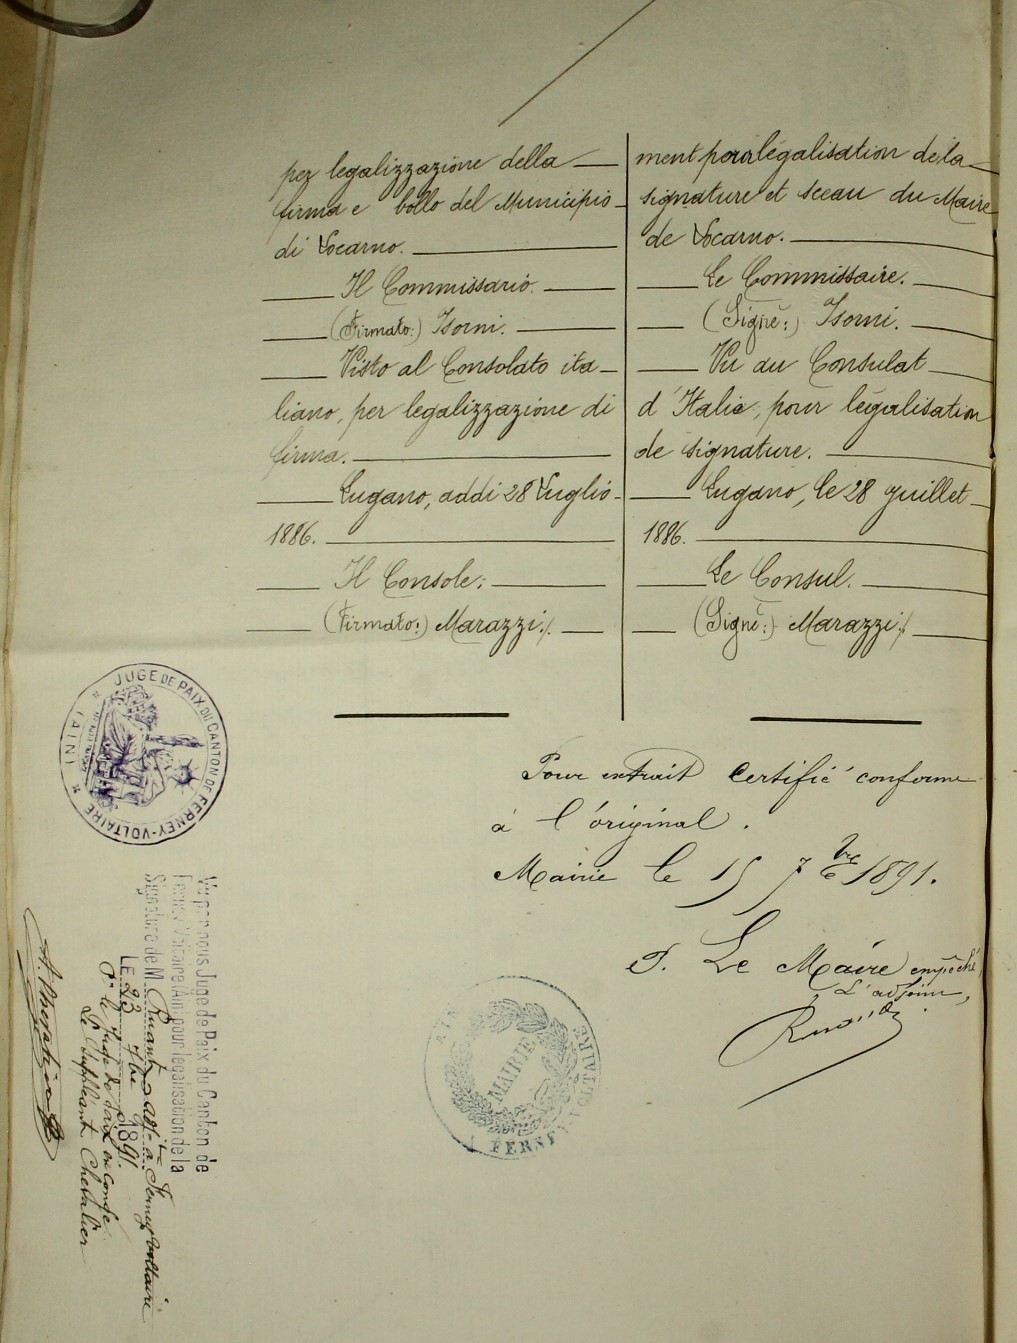 per legalizzazione della
firma e bollo del Municipio
di Locarno.
Il Commissario.
(Firmato:) Isorni.
Visto al Consolato ita-
liano, per legalizzazione di
firma.
Lugano, addi 28 Luglio
1886.
Il Console:
(Firmato:) Marazzi./.
ment pour légalisation de la
signature et sceau du Maire
de Locarno.
Le Commissaire.
(Signé:) Isorni.
Vu au Consulat
d'Italie, pour légalisation
de signature.
Lugano, le 28 juillet
1886.
Le Consul.
(Signé:) Marazzi./.
Pour extrait certifié conforme
à l'original.
Mairie le 15 7bre 1891.
P. Le Maire empêché,
L'adjoint,
MAIRIE
AIN
FERNEY-VOLTAIRE
JUGE DE PAIX DU CANTON DE FERNEY-VOLTAIRE
(AIN)
Vu par nous Juge de Paix du Canton de
Ferney-Voltaire (Ain) pour légalisation de la
Signature de M. Ruant adjt à Ferney Voltaire
LE 23 7bre 1891.
Pr le Juge de Paix en congé
Le Suppléant Chevalier